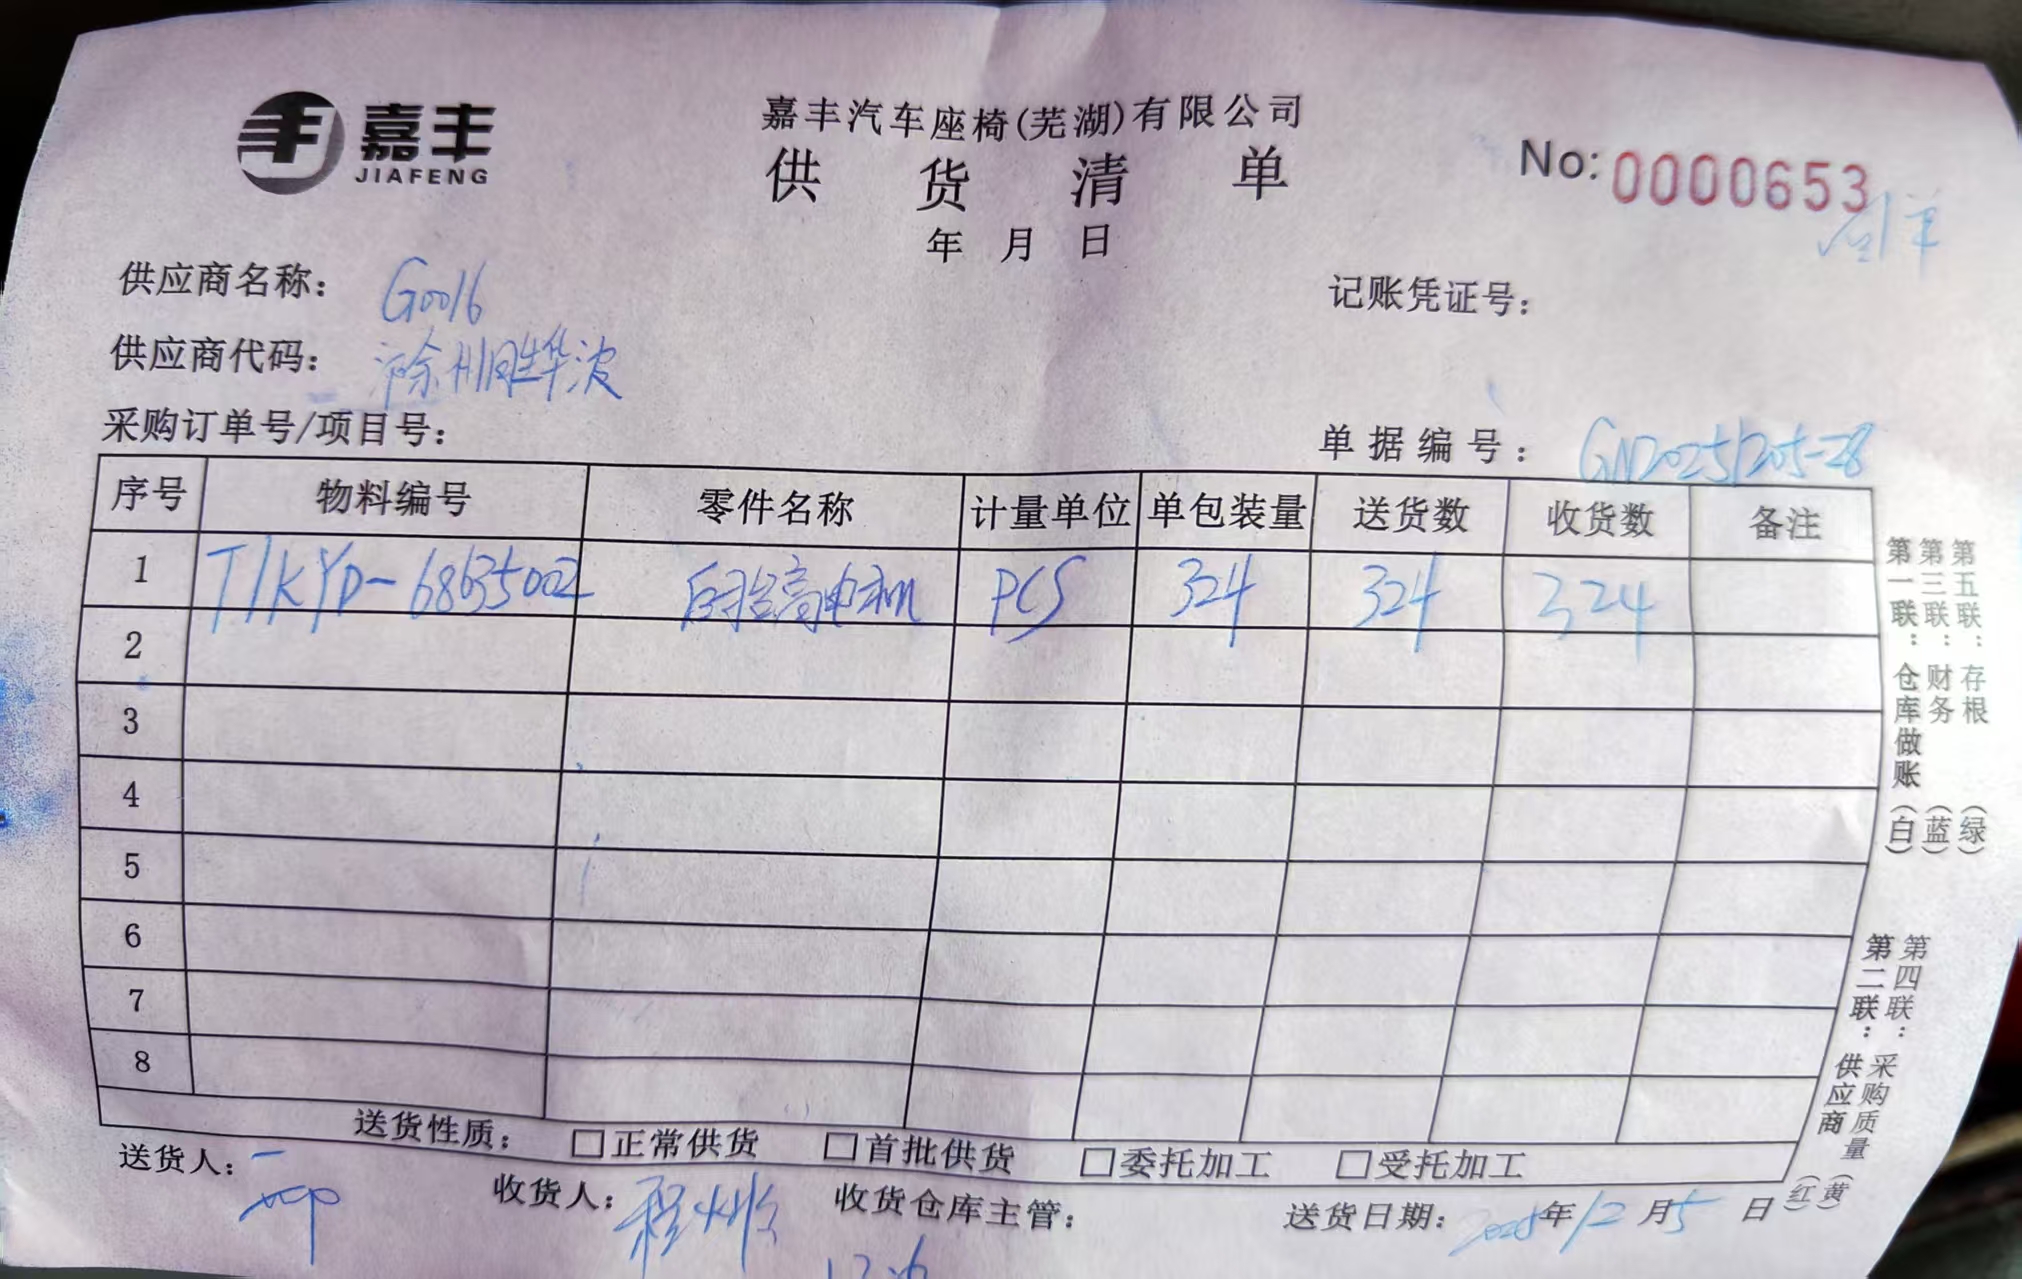 嘉丰
JIAFENG
嘉丰汽车座椅(芜湖)有限公司
供货清单
No: 0000653
年 月 日
供应商名称: G0016
记账凭证号:
供应商代码: 滁州胜华波
采购订单号/项目号:
单据编号: GN20251205-28
序号 物料编号 零件名称 计量单位 单包装量 送货数 收货数 备注
1 T1KYD-68635002 后抬高电机 PCS 324 324 324
2
3
4
5
6
7
8
送货性质: □正常供货 □首批供货 □委托加工 □受托加工
送货人:
收货人: 程
收货仓库主管:
送货日期: 2025年12月5日
第一联:仓库做账(白)
第三联:财务(蓝)
第五联:存根(绿)
第二联:供应商(红)
第四联:采购质量(黄)